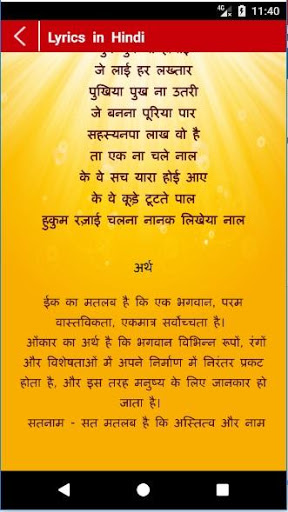 4G 11:40
Lyrics in Hindi
जे लाई हर लख्तार
पुखिया पुख ना उतरी
जे बनना पूरिया पार
सहस्यनपा लाख वो है
ता एक ना चले नाल
के वे सच यारा होई आए
के वे कूडे टूटते पाल
हुकुम रज़ाई चलना नानक लिखेया नाल
अर्थ
ईक का मतलब है कि एक भगवान, परम
वास्तविकता, एकमात्र सर्वोच्चता है।
ओंकार का अर्थ है कि भगवान विभिन्न रूपों, रंगों
और विशेषताओं में अपने निर्माण में निरंतर प्रकट
होता है, और इस तरह मनुष्य के लिए जानकार हो
जाता है।
सतनाम - सत मतलब है कि अस्तित्व और नाम